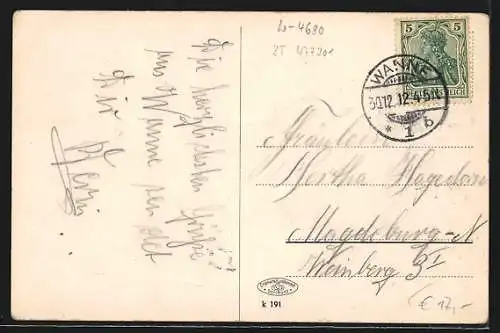 Die herzlichsten Grüße
aus Wanne sendet
Dir
20-4680
ZT
5 5
WANNE
30.12.12.4-5N
* 1 b
REICH
Fräulein
Bertha Hagedorn
Magdeburg-N
Weinberg 3I
k 191
€ 17,-